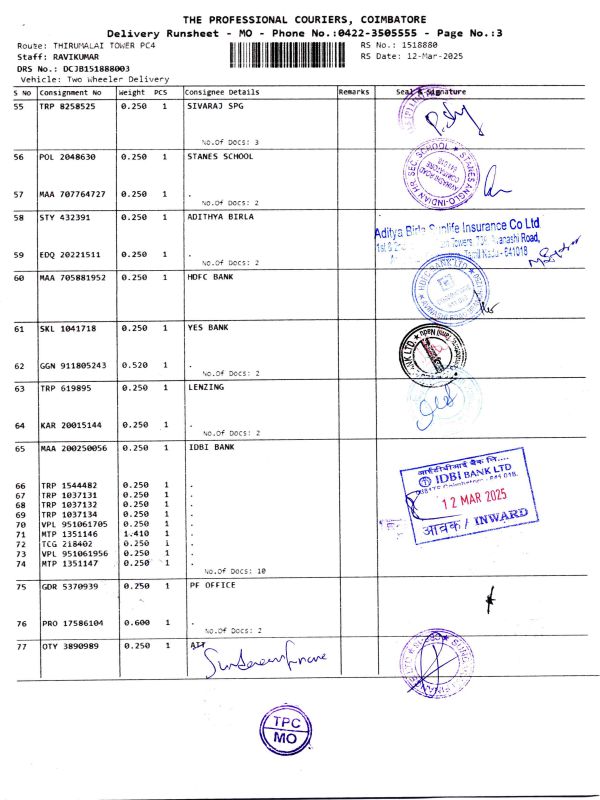 THE PROFESSIONAL COURIERS, COIMBATORE
Delivery Runsheet - MO - Phone No.:0422-3505555 - Page No.:3
Route: THIRUMALAI TOWER PC4
RS No.: 1518880
Staff: RAVIKUMAR
RS Date: 12-Mar-2025
DRS No.: DCJB151888003
Vehicle: Two Wheeler Delivery
S No Consignment No Weight PCS Consignee Details Remarks Seal & Signature
55 TRP 8258525 0.250 1 SIVARAJ SPG
No.Of Docs: 3
56 POL 2048630 0.250 1 STANES SCHOOL
STANES ANGLO-INDIAN HR SEC SCHOOL
AVINASHI ROAD
COIMBATORE
641018
57 MAA 707764727 0.250 1 .
No.Of Docs: 2
58 STY 432391 0.250 1 ADITHYA BIRLA
Aditya Birla Sunlife Insurance Co Ltd
Towers, Avanashi Road,
Tamil Nadu - 641018
59 EDQ 20221511 0.250 1 .
No.Of Docs: 2
60 MAA 705881952 0.250 1 HDFC BANK
HDFC BANK LTD
61 SKL 1041718 0.250 1 YES BANK
Tamil Nadu
NK LTD.
62 GGN 911805243 0.520 1 .
No.Of Docs: 2
63 TRP 619895 0.250 1 LENZING
64 KAR 20015144 0.250 1 .
No.Of Docs: 2
65 MAA 200250056 0.250 1 IDBI BANK
आईडीबीआई बैंक लि....
IDBI BANK LTD
12 MAR 2025
आवक / INWARD
66 TRP 1544482 0.250 1 .
67 TRP 1037131 0.250 1 .
68 TRP 1037132 0.250 1 .
69 TRP 1037134 0.250 1 .
70 VPL 951061705 0.250 1 .
71 MTP 1351146 1.410 1 .
72 TCG 218402 0.250 1 .
73 VPL 951061956 0.250 1 .
74 MTP 1351147 0.250 1 .
No.Of Docs: 10
75 GDR 5370939 0.250 1 PF OFFICE
76 PRO 17586104 0.600 1 .
No.Of Docs: 2
77 OTY 3890989 0.250 1 AIT
TPC
MO